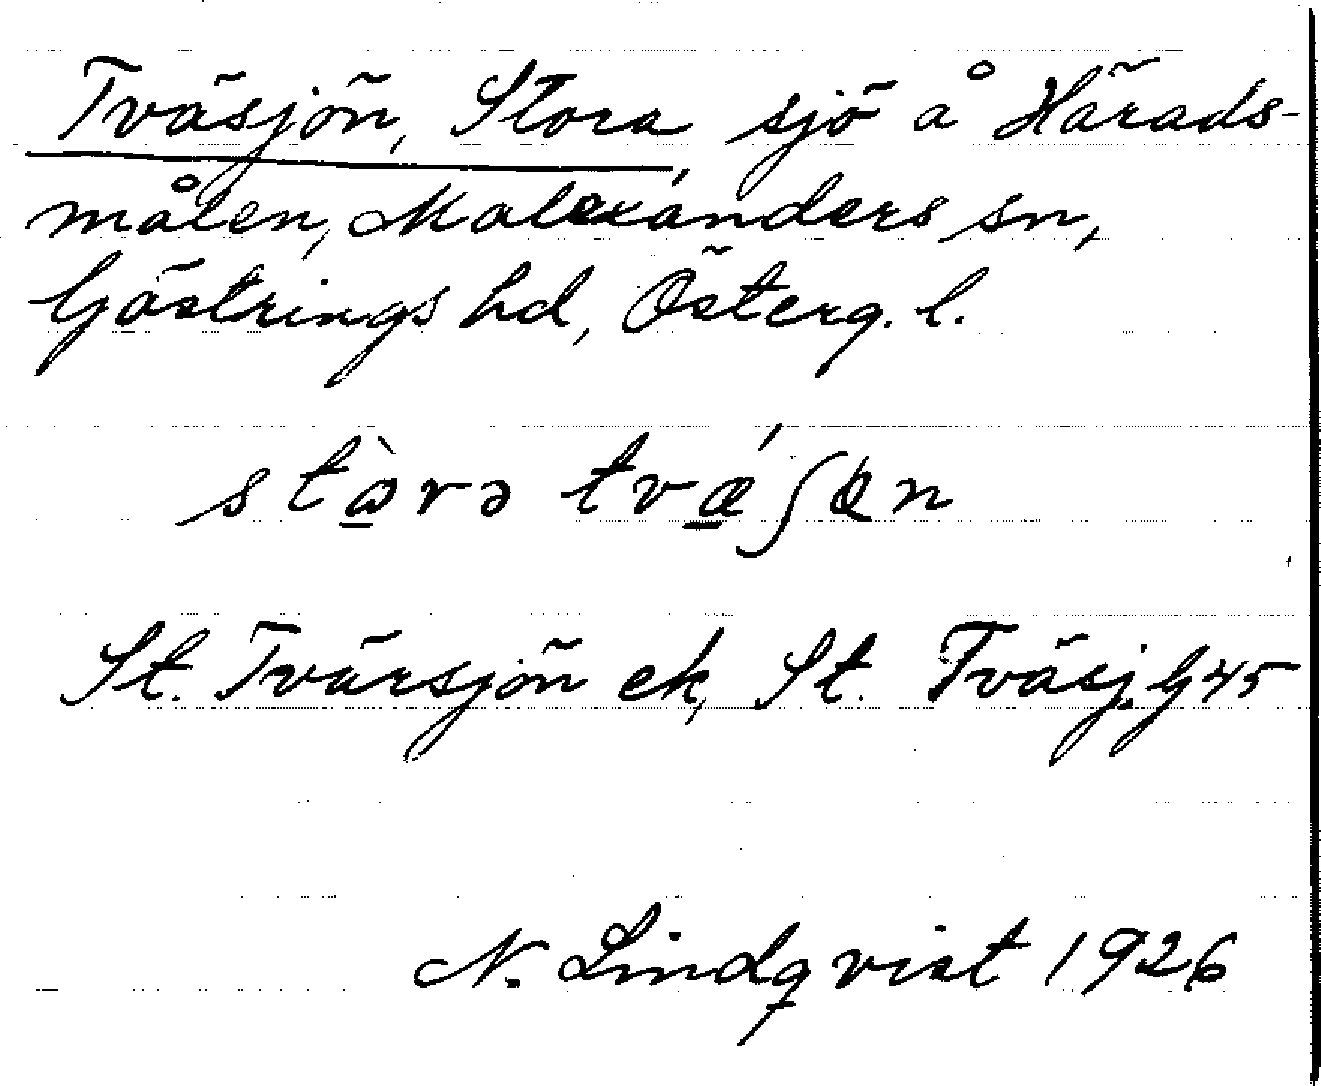 Tväsjön, Stora, sjö å Härads-
målen, Malexanders sn,
Göstrings hd, Österg. l.
stɷ̀rə tvǽʃøn
St. Tvärsjön ek, St. Tväsj. G 45
N. Lindqvist 1926